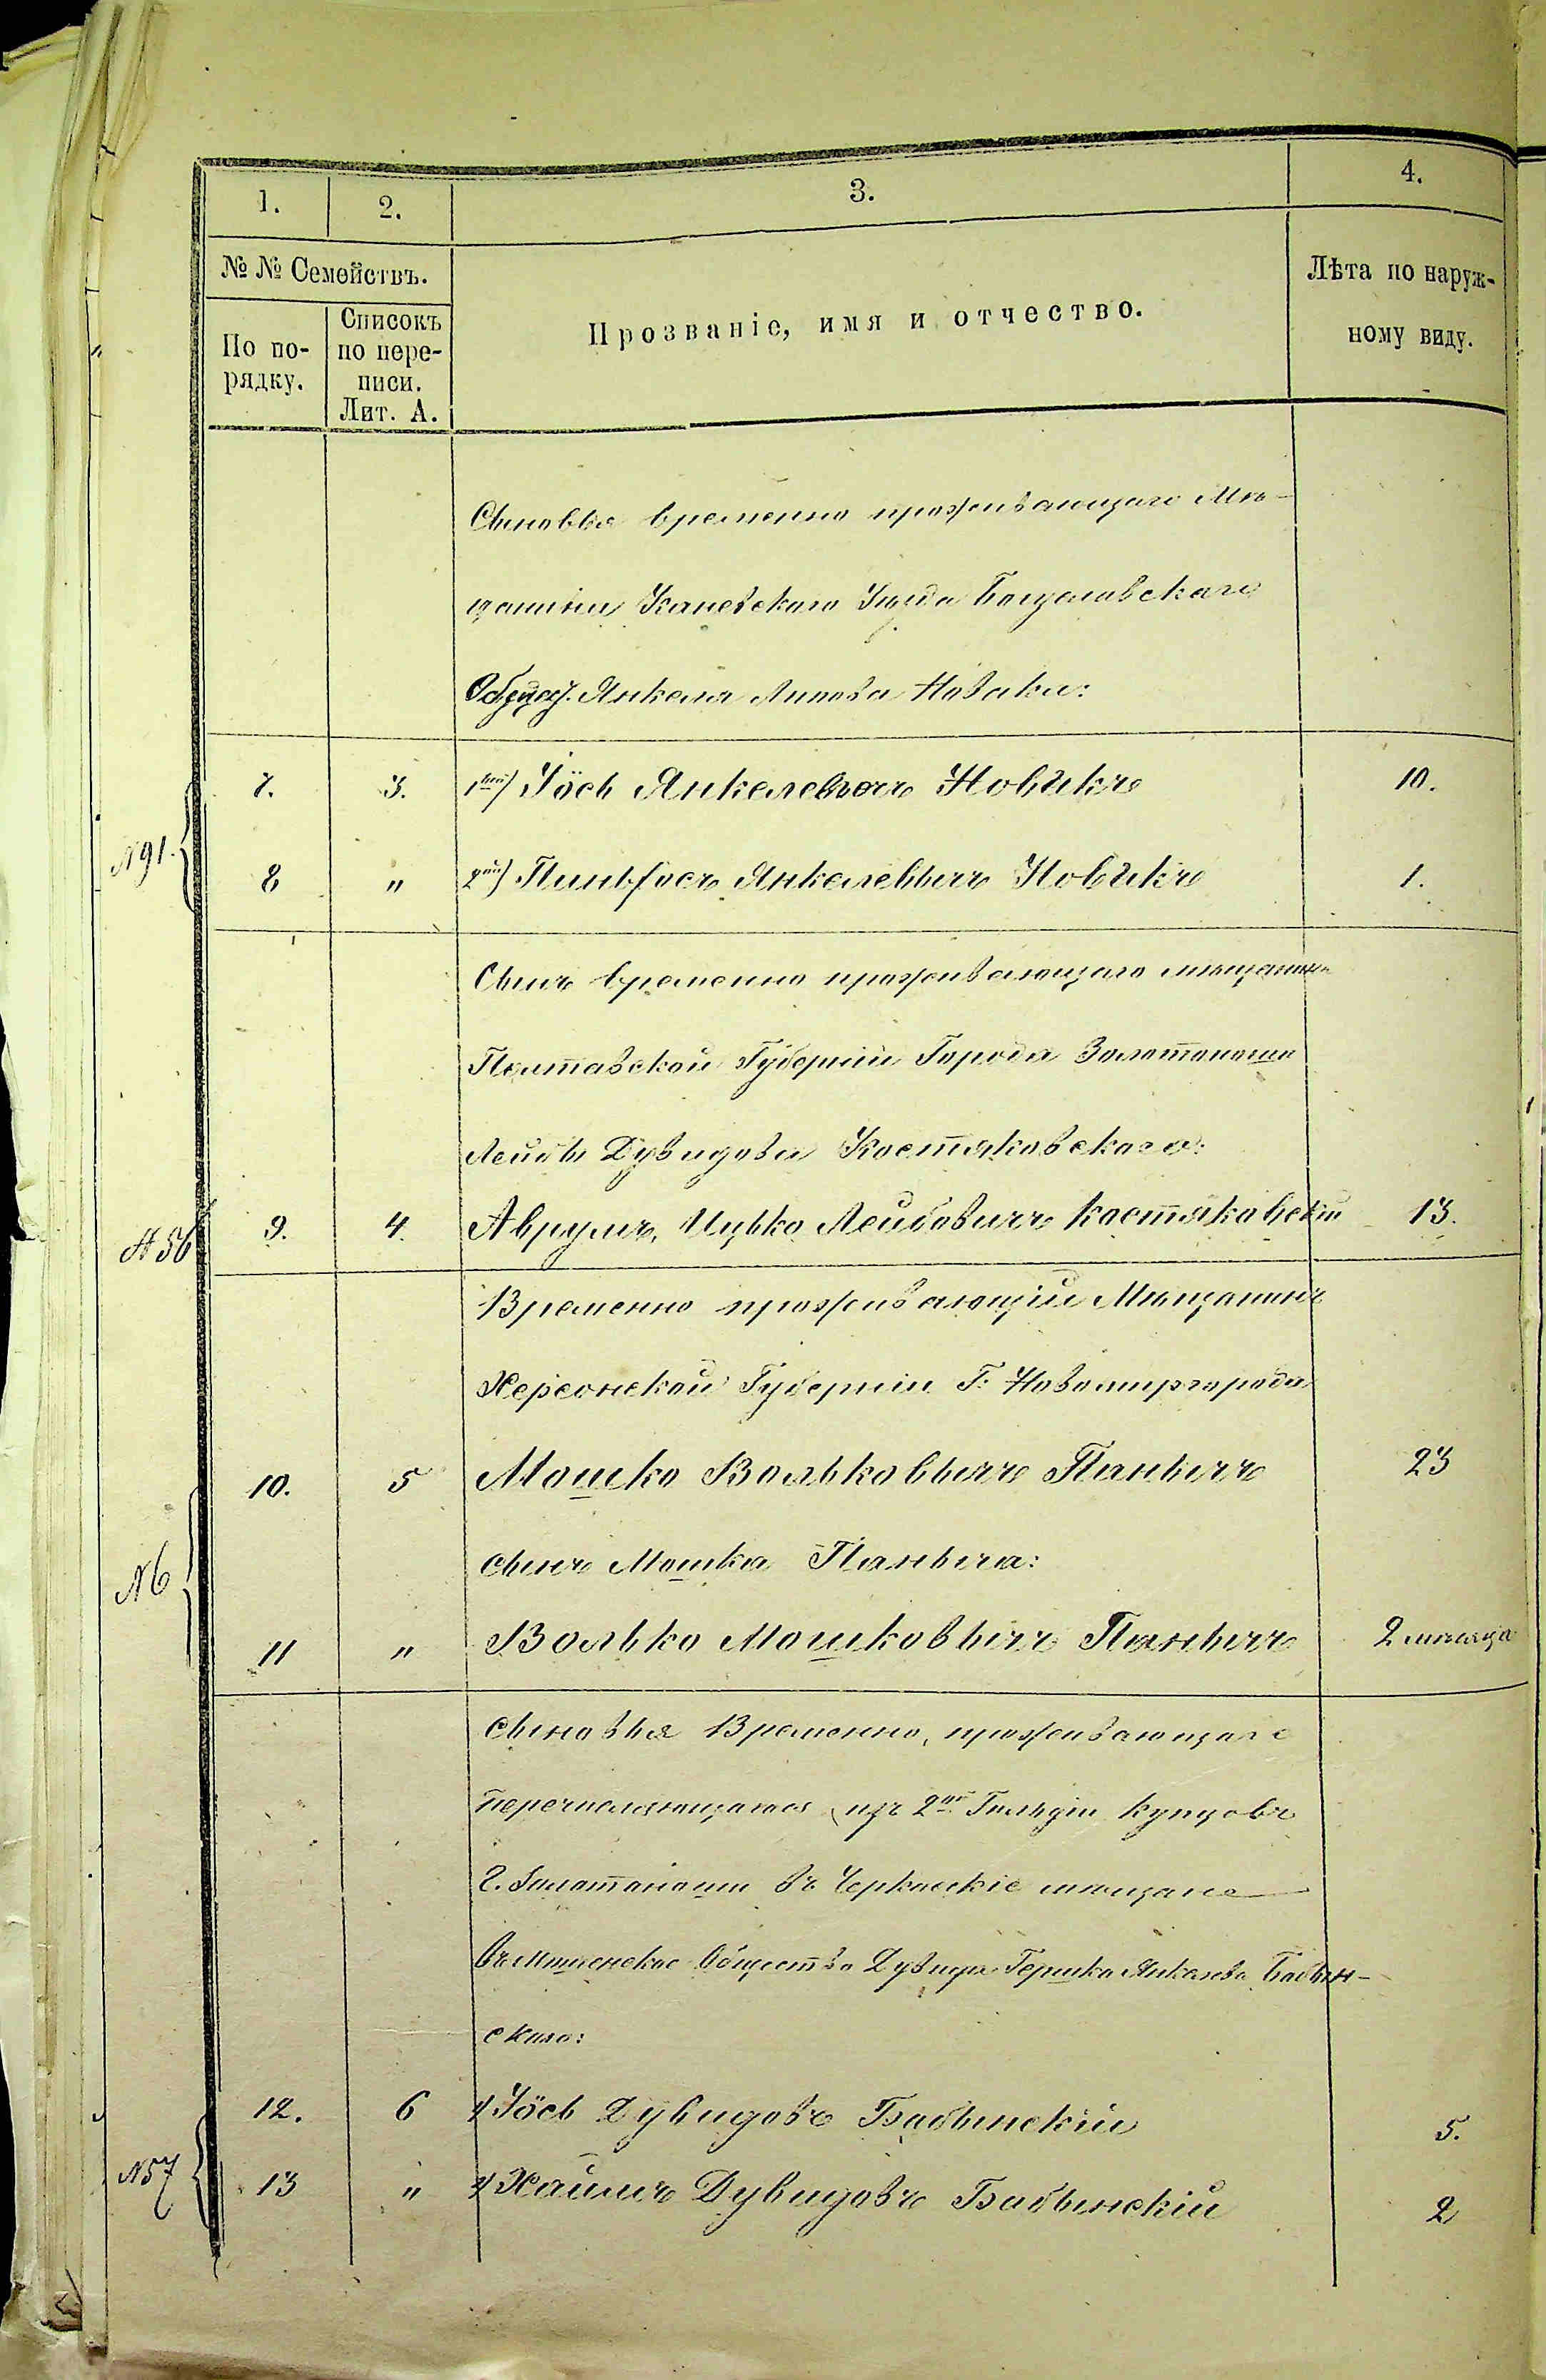 1. 2. 3. 4.
№ № Семействъ.
По по-
рядку.
Списокъ
по пере-
писи.
Лит. А.
Прозваніе, имя и отчество.
Лѣта по наруж-
ному виду.
Сыновья временно проживающаго Мѣ-
щанина Каневскаго Уѣзда Богуславскаго
Янкеля Липова Новака:
N91.
7. 3. 1ый) Іось Янкелевичъ Новикъ 10.
8 " 2ий) Пиньфосъ Янкелевычъ Новикъ 1.
Сынъ временно проживающаго мѣщанина
Полтавской Губерніи Города Золотоноши
Лейбы Дувидова Костяковскаго:
N56 9. 4. Аврумъ, Ицько Лейбовичъ Костяковскій 13.
Временно проживающій Мѣщанинъ
Херсонской Губерніи Г. Новомиргорода
N6
10. 5 Мошко Вольковычъ Панычъ 23
сынъ Мошка Паныча:
11 " Волько Мошковычъ Панычъ 2 мѣсяца
сыновья Временно, проживающаго
перечисляющагося изъ 2ой Гильдіи купцовъ
г. Золотоноши въ Черкаскіе мѣщане
Общество Дувида Гершка Янкелева Бабын-
скаго:
12. 6 1) Іось Дувидовъ Бабынскій 5.
N57
13 " 2) Хаимъ Дувидовъ Бабынскій 2